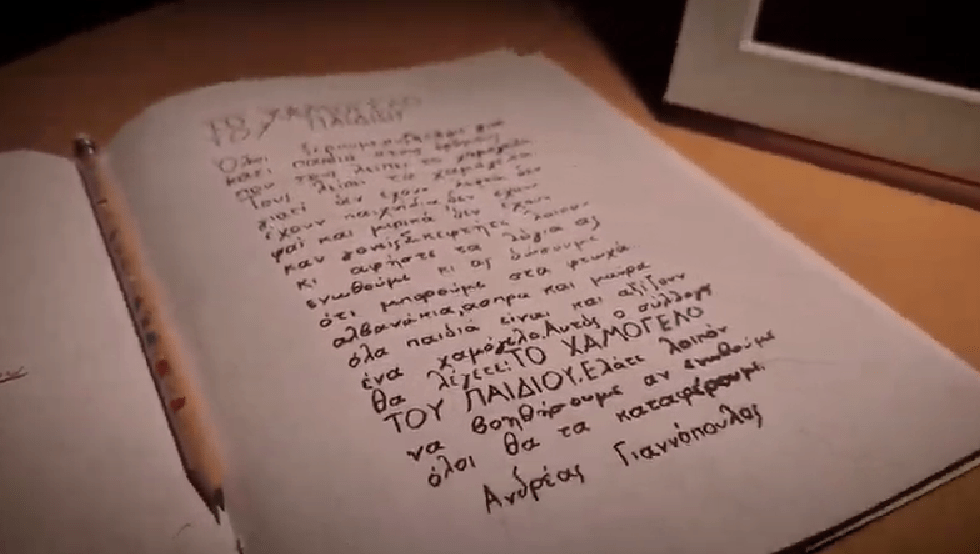 ΤΟ ΧΑΜΟΓΕΛΟ
ΤΟΥ ΠΑΙΔΙΟΥ
Όλοι ξερουμε
κατι παιδια στους δρόμους
που τους λείπει το χαμόγελο
Τους λείπει το χαμόγελο
γιατί δεν έχουν λεφτά δεν
έχουν παιχνίδια δεν έχουν
φαΐ και μερικά δεν έχουν
καν γονείς.Σκεφτήτε λοιπόν
κι αφήστε τα λόγια ας
ενωθούμε κι ας δώσουμε
ότι μπορούμε στα φτωχά
αλβανάκια,ασπρα και μαυρα
όλα παιδιά είναι και αξίζουν
ένα χαμόγελο.Αυτός ο σύλλογος
θα λέγετε:ΤΟ ΧΑΜΟΓΕΛΟ
ΤΟΥ ΠΑΙΔΙΟΥ.Ελάτε λοιπόν
να βοηθήσουμε αν ενωθούμε
όλοι θα τα καταφέρουμε.
Ανδρέας Γιαννόπουλος